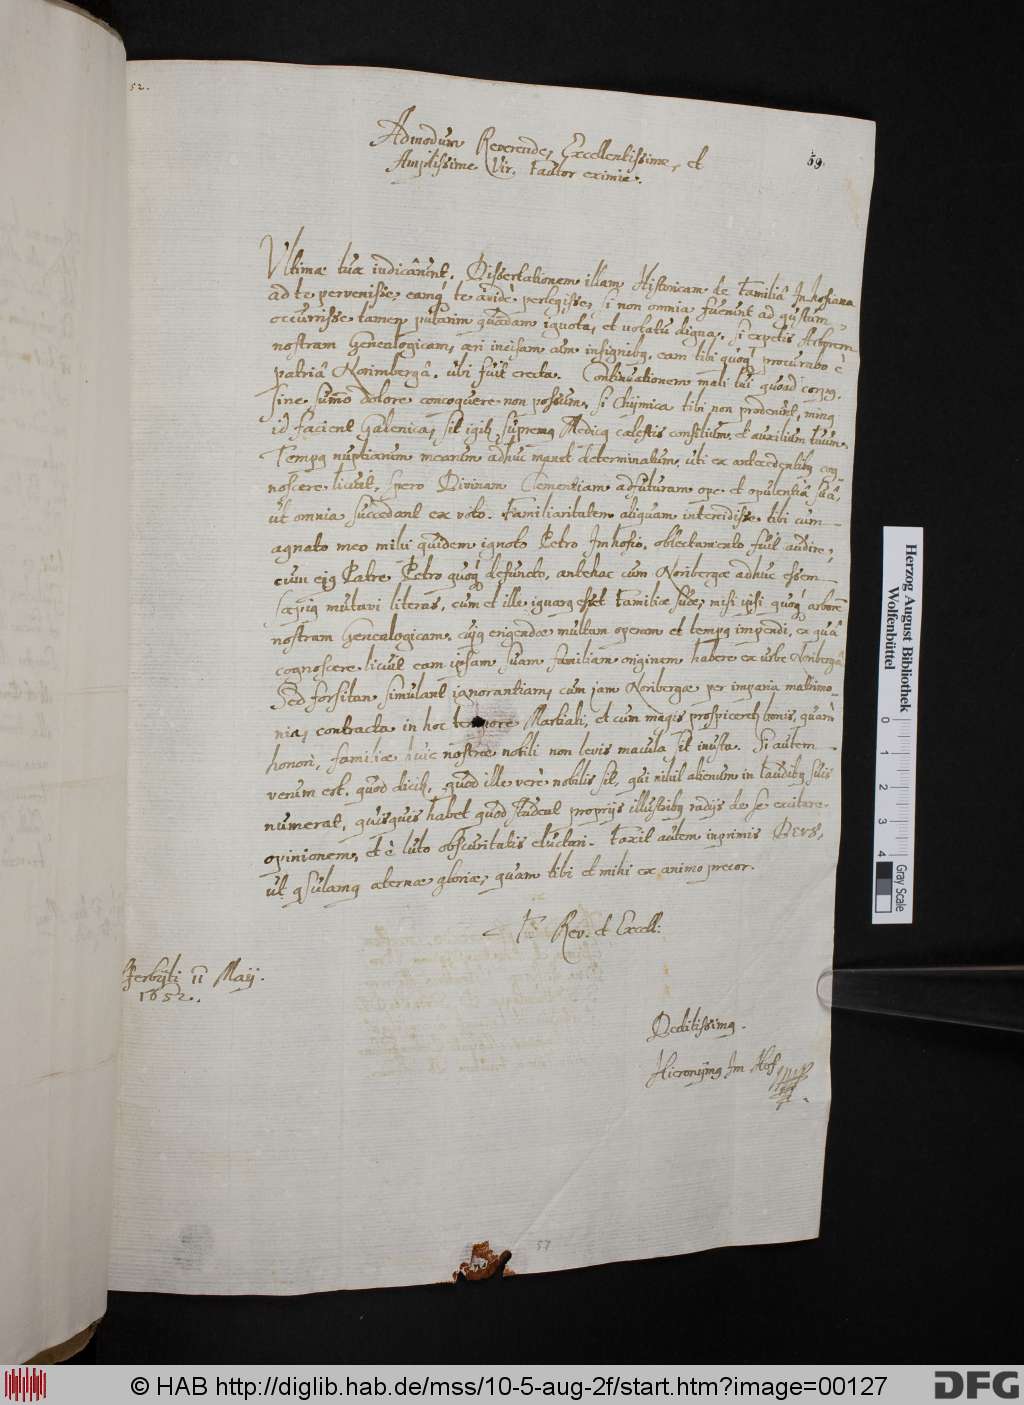 52.
69.
Admodum Reverende, Excellentissime, et
Amplissime Vir. Fautor eximie.
Ultimae tuae iudicârunt. Dissertationem illam Historicam de Familiâ Imhofiana
ad te pervenisse, eamq; te avidè perlegisse, si non omnia fuerint ad gustum,
occurrisse tamen putarim quaedam ignota, et notatu digna. Si expetis Arborem
nostram Genealogicam, aeri incisam cum insignibq, eam tibi quoq; procurabo è
patriâ Norimbergâ, ubi fuit erecta. Continuationem mali tui quoad corpq.
sine summo dolore concoquere non possum, si Chijmica tibi non proderunt, minq
id facient Galenica, sit igitur supremq Medicq caelestis consilium, et auxilium tuum.
Tempq nuptiarum mearum adhuc manet determinatum, uti ex antecedentibq cog-
noscere licuit, spero Divinam Clementiam adfuturam ope et opulentiâ suâ,
ut omnia succedant ex voto. Familiaritatem aliquam intercidisse tibi cum
agnato meo mihi quidem ignoto Petro Imhofio, oblectamento fuit audire,
cum ejq Patre Petro quoq; defuncto, antehac cum Noribergae adhuc essem
saepiq mutavi literas, cum et ille ignarq esset Familiae suae, nisi ipsi quoq; arborē
nostram Genealogicam, cujq erigendae multam operam et tempq impendi, ex quâ
cognoscere licuit eam ipsam suam familiam originem habere ex urbe Noribergâ
Sed forsitan simulant ignorantiam, cum jam Noribergae per imparia matrimo-
nia, contracta in hoc tempore Martiali, et cum magis prospicerent bonis, quam
honori, familiae huic nostrae nobili non levis macula sit inusta. Si autem
verum est, quod dicit, quod ille verè nobilis sit, qui nihil alienum in laudibq suis
numerat, quisquis habet quod studeat proprijs illustribq radijs de se excitare
opinionem, et è luto obscuritatis eluctari. Faxit autem inprimis DEVS,
ut qsulamq aeternae gloriae, quam tibi et mihi ex animo precor.
T. Rev. et Excell:
Servestae 11 Maij.
1652.
Deditissimq.
Hieronijmq Im Hof
57
Herzog August Bibliothek
Wolfenbüttel
0 1 2 3 4
Gray Scale
© HAB http://diglib.hab.de/mss/10-5-aug-2f/start.htm?image=00127
DFG